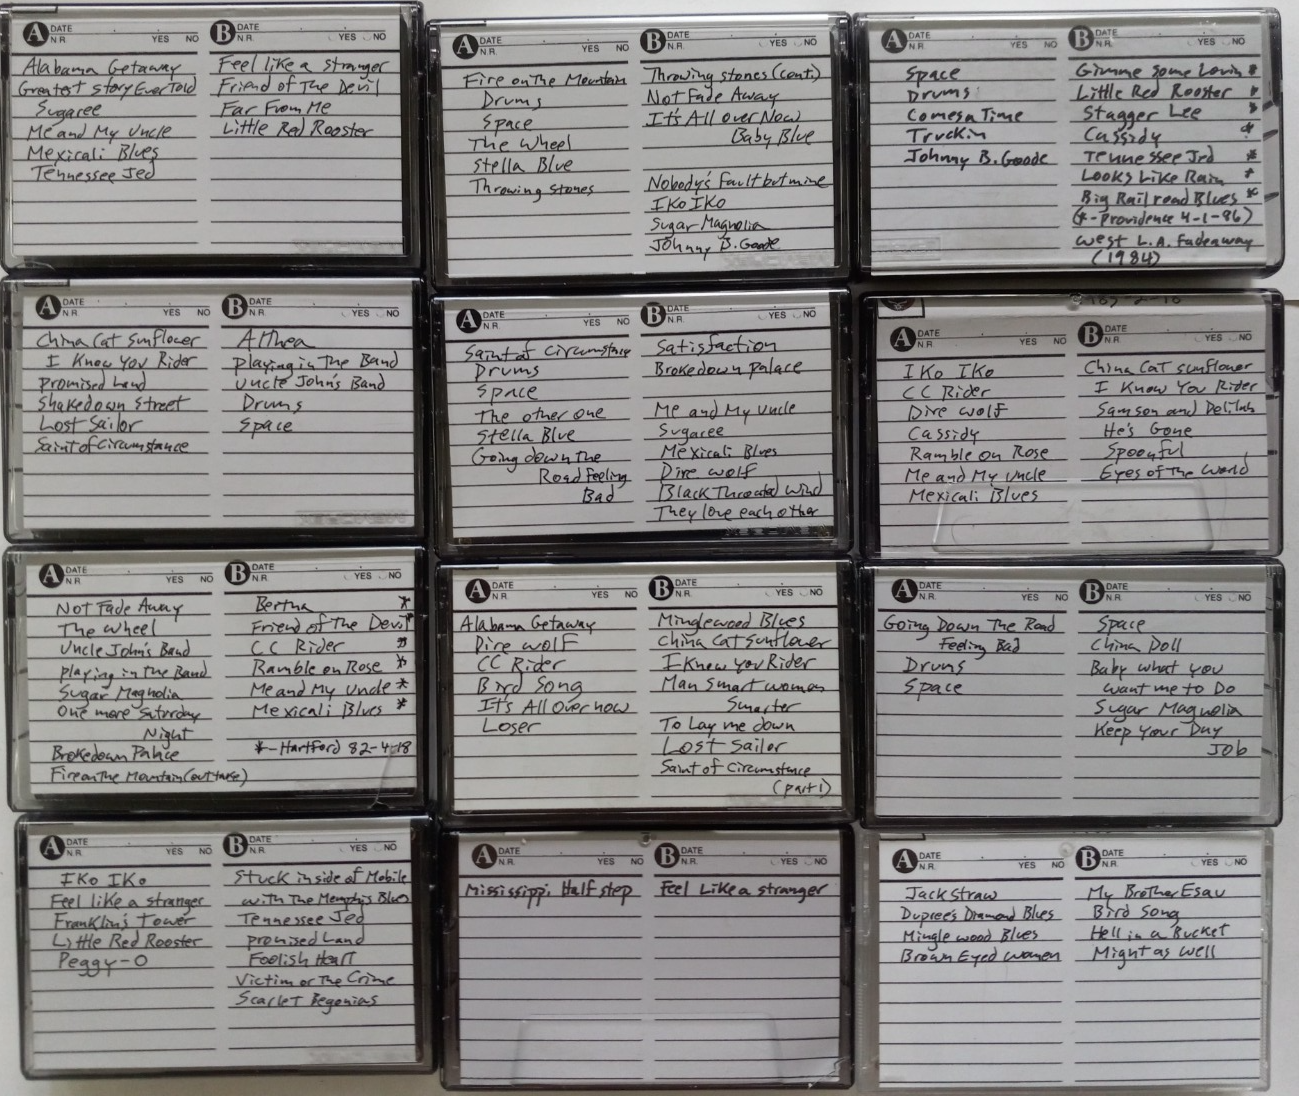 A DATE N.R. YES NO B DATE N.R. YES NO
Alabama Getaway
Greatest Story Ever Told
Sugaree
Me and My Uncle
Mexicali Blues
Tennessee Jed
Feel like a stranger
Friend of The Devil
Far From Me
Little Red Rooster
A DATE N.R. YES NO B DATE N.R. YES NO
Fire on The Mountain
Drums
Space
The Wheel
Stella Blue
Throwing Stones
Throwing stones (cont.)
Not Fade Away
It's All over Now
Baby Blue
Nobody's Fault but mine
IKO IKO
Sugar Magnolia
Johnny B. Goode
A DATE N.R. YES NO B DATE N.R. YES NO
Space
Drums
Comes a Time
Truckin
Johnny B. Goode
Gimme Some Lovin *
Little Red Rooster *
Stagger Lee *
Cassidy *
Tennessee Jed *
Looks Like Rain *
Big Railroad Blues *
(*-Providence 4-1-86)
West L.A. Fadeaway
(1984)
A DATE N.R. YES NO B DATE N.R. YES NO
China Cat Sunflower
I Know You Rider
Promised Land
Shakedown Street
Lost Sailor
Saint of Circumstance
Althea
Playing in The Band
Uncle John's Band
Drums
Space
A DATE N.R. YES NO B DATE N.R. YES NO
Saint of Circumstance
Drums
Space
The other one
Stella Blue
Going down the
Road feeling
Bad
Satisfaction
Brokedown palace
Me and My Uncle
Sugaree
Mexicali Blues
Dire wolf
Black Throated Wind
They love each other
A DATE N.R. YES NO B DATE N.R. YES NO
IKO IKO
CC Rider
Dire wolf
Cassidy
Ramble on Rose
Me and My Uncle
Mexicali Blues
China Cat sunflower
I Know You Rider
Samson and Delilah
He's Gone
Spoonful
Eyes of The World
A DATE N.R. YES NO B DATE N.R. YES NO
Not Fade Away
The Wheel
Uncle John's Band
Playing in The Band
Sugar Magnolia
One more Saturday
Night
Brokedown Palace
Fire on The Mountain (out take)
Bertha *
Friend of The Devil *
CC Rider *
Ramble on Rose *
Me and My Uncle *
Mexicali Blues *
*-Hartford 82-4-18
A DATE N.R. YES NO B DATE N.R. YES NO
Alabama Getaway
Dire wolf
CC Rider
Bird Song
It's All over now
Loser
Minglewood Blues
China Cat Sunflower
I Know You Rider
Man Smart woman
Smarter
To Lay me down
Lost Sailor
Saint of Circumstance
(part 1)
A DATE N.R. YES NO B DATE N.R. YES NO
Going Down The Road
Feeling Bad
Drums
Space
Space
China Doll
Baby what you
want me to Do
Sugar Magnolia
Keep Your Day
Job
A DATE N.R. YES NO B DATE N.R. YES NO
IKO IKO
Feel like a stranger
Franklin's Tower
Little Red Rooster
Peggy-O
Stuck inside of Mobile
with The Memphis Blues
Tennessee Jed
Promised Land
Foolish Heart
Victim or The Crime
Scarlet Begonias
A DATE N.R. YES NO B DATE N.R. YES NO
Mississippi Half step
Feel Like a stranger
A DATE N.R. YES NO B DATE N.R. YES NO
Jack Straw
Dupree's Diamond Blues
Mingle wood Blues
Brown Eyed women
My Brother Esau
Bird Song
Hell in a Bucket
Might as well